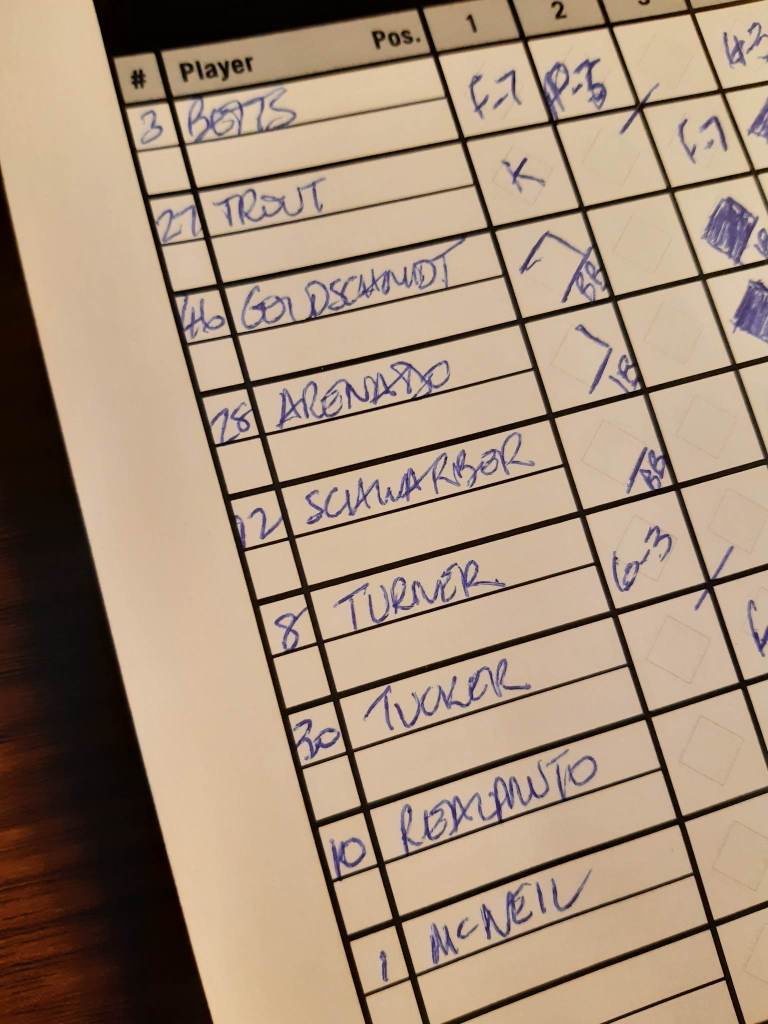 # Player Pos. 1 2 3
3 BETTS F-7 P-5 4-3
27 TROUT K F-7
46 GOLDSCHMIDT BB
28 ARENADO 1B
12 SCHWARBER BB
8 TURNER 6-3
30 TUCKER
10 REALMUTO
1 McNEIL